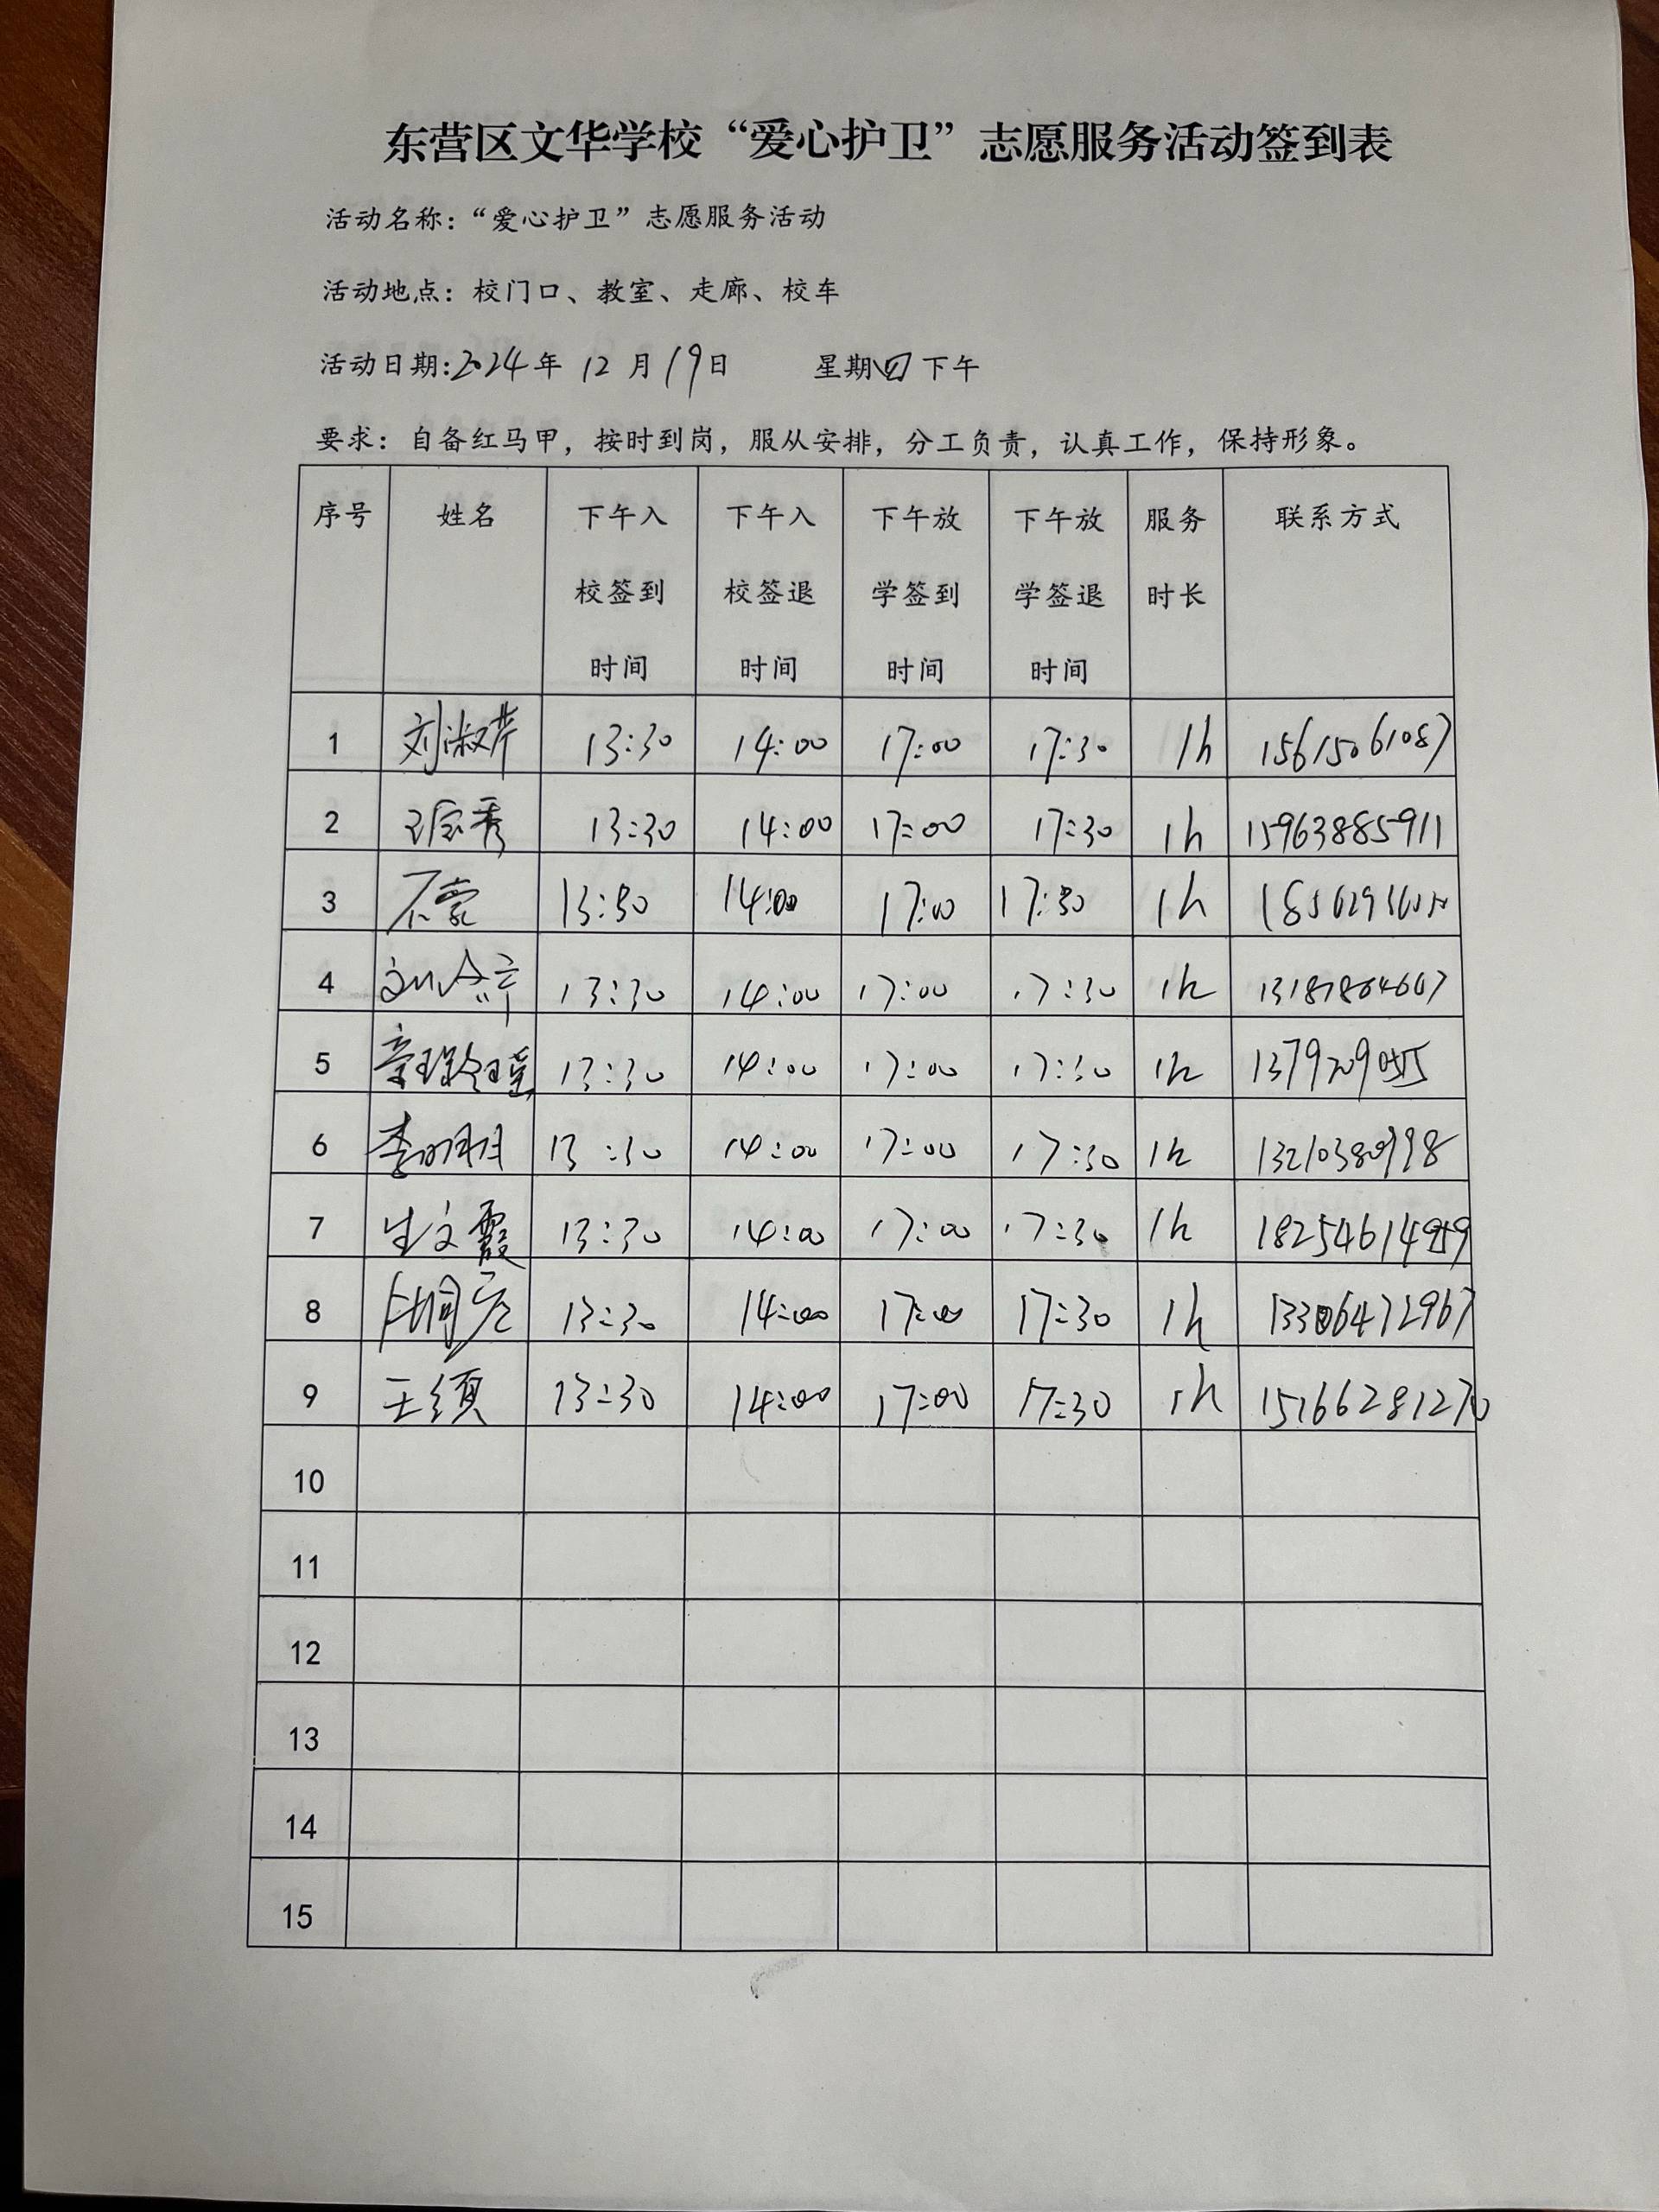 东营区文华学校“爱心护卫”志愿服务活动签到表
活动名称：“爱心护卫”志愿服务活动
活动地点：校门口、教室、走廊、校车
活动日期:2024年 12月19日 星期四下午
要求：自备红马甲，按时到岗，服从安排，分工负责，认真工作，保持形象。
序号 姓名 下午入校签到时间 下午入校签退时间 下午放学签到时间 下午放学签退时间 服务时长 联系方式
1 刘淑芹 13:30 14:00 17:00 17:30 1h 15615061087
2 13:30 14:00 17:00 17:30 1h 15963885911
3 石蒙 13:30 14:00 17:00 17:30 1h
4 13:30 14:00 17:00 17:30 1h
5 13:30 14:00 17:00 17:30 1h
6 李明月 13:30 14:00 17:00 17:30 1h
7 生文霞 13:30 14:00 17:00 17:30 1h
8 13:30 14:00 17:00 17:30 1h 13306472967
9 王须 13:30 14:00 17:00 17:30 1h 15166281270
10
11
12
13
14
15